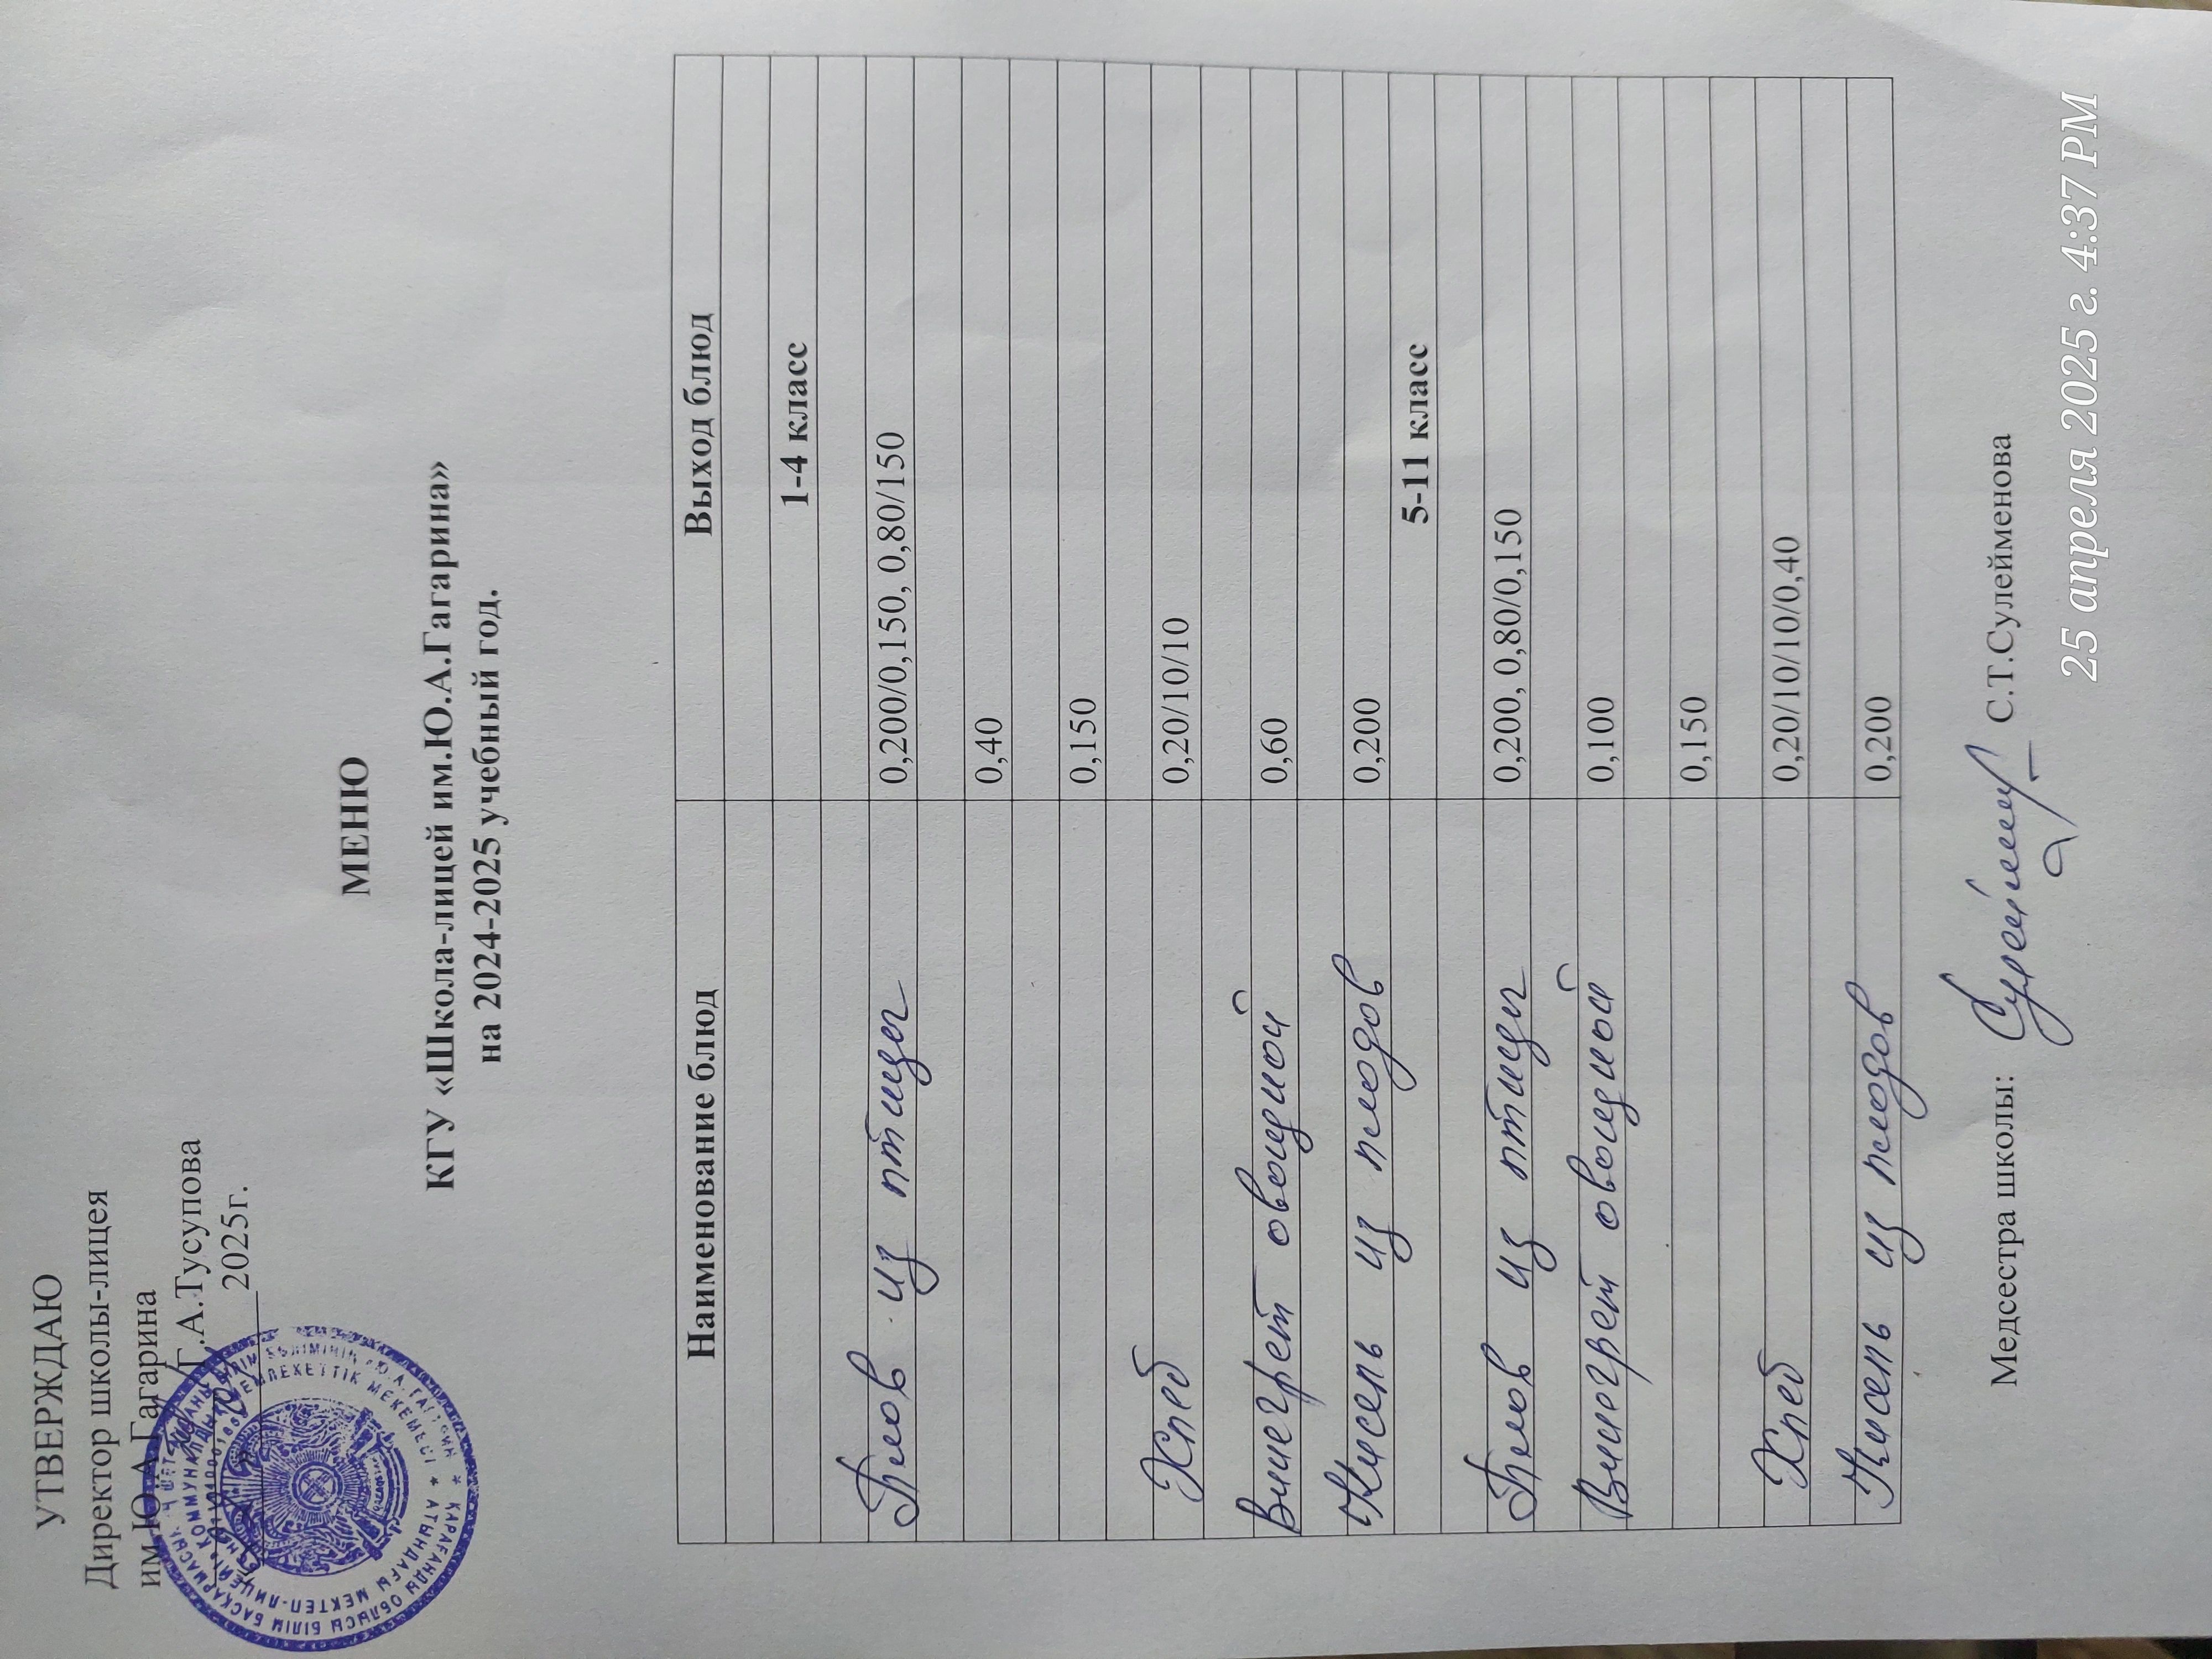 УТВЕРЖДАЮ
Директор школы-лицея
им.Ю.А.Гагарина
Г.А.Тусупова
2025г.
МЕНЮ
КГУ «Школа-лицей им.Ю.А.Гагарина»
на 2024-2025 учебный год.
Наименование блюд Выход блюд
1-4 класс
Плов из птицы 0,200/0,150, 0,80/150
0,40
0,150
Хлеб 0,20/10/10
Винегрет овощной 0,60
Кисель из плодов 0,200
5-11 класс
Плов из птицы 0,200, 0,80/0,150
Винегрет овощной 0,100
0,150
Хлеб 0,20/10/10/0,40
Кисель из плодов 0,200
Медсестра школы: С.Т.Сулейменова
25 апреля 2025 г. 4:37 PM